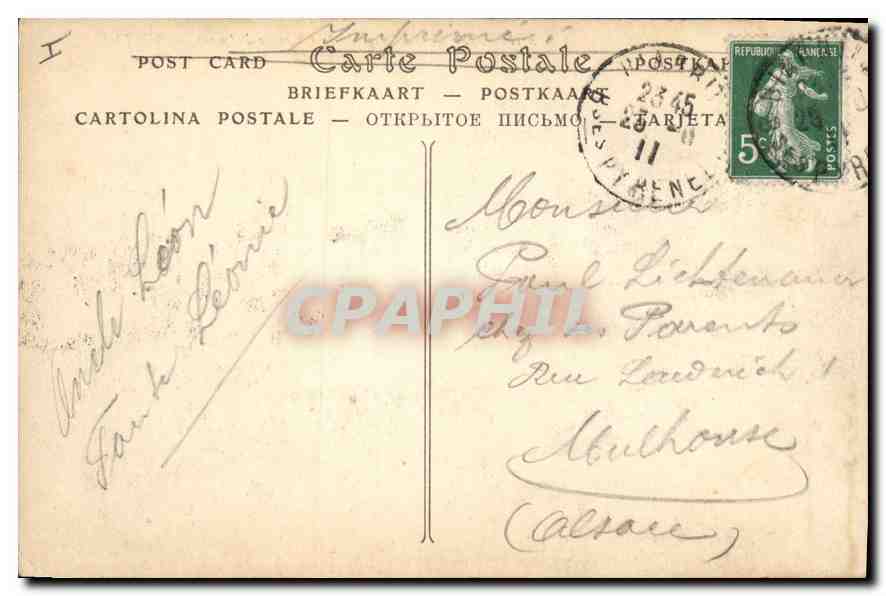 I
Imprimé
POST CARD Carte Postale POSTKA
BRIEFKAART — POSTKAART
CARTOLINA POSTALE — ОТКРЫТОЕ ПИСЬМО — TARJETA
23 45
25
11
PYRENEES
REPUBLIQUE FRANÇAISE
5c POSTES
Oncle Léon
Tante Léonie
CPAPHIL
Monsieur
Paul Lichtenauer
chez ses Parents
Rue
Mulhouse
(Alsace)